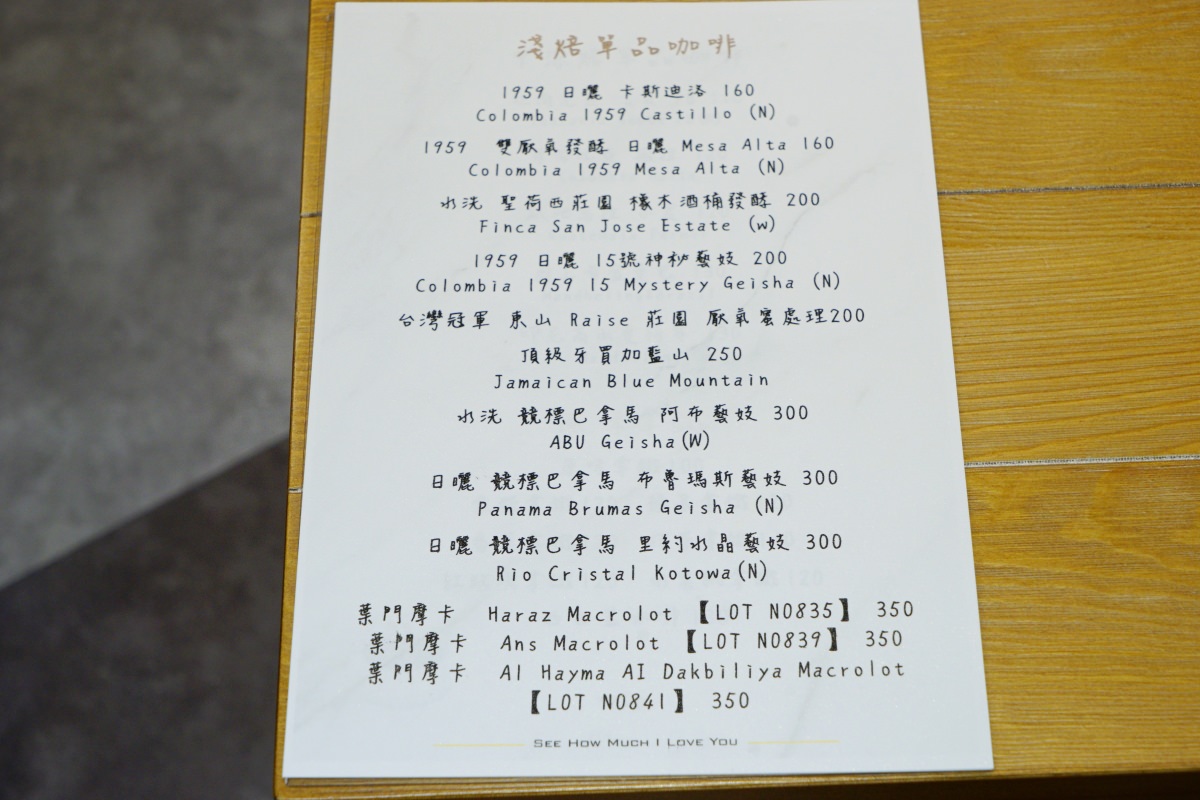 淺焙單品咖啡
1959 日曬 卡斯迪洛 160
Colombia 1959 Castillo (N)
1959 雙厭氧發酵 日曬 Mesa Alta 160
Colombia 1959 Mesa Alta (N)
水洗 聖荷西莊園 橡木酒桶發酵 200
Finca San Jose Estate (w)
1959 日曬 15號神秘藝妓 200
Colombia 1959 15 Mystery Geisha (N)
台灣冠軍 東山 Raise 莊園 厭氧蜜處理200
頂級牙買加藍山 250
Jamaican Blue Mountain
水洗 競標巴拿馬 阿布藝妓 300
ABU Geisha(W)
日曬 競標巴拿馬 布魯瑪斯藝妓 300
Panama Brumas Geisha (N)
日曬 競標巴拿馬 里約水晶藝妓 300
Rio Cristal Kotowa(N)
葉門摩卡 Haraz Macrolot 【LOT NO835】 350
葉門摩卡 Ans Macrolot 【LOT NO839】 350
葉門摩卡 Al Hayma AI Dakbiliya Macrolot
【LOT NO841】 350
See How Much I Love You